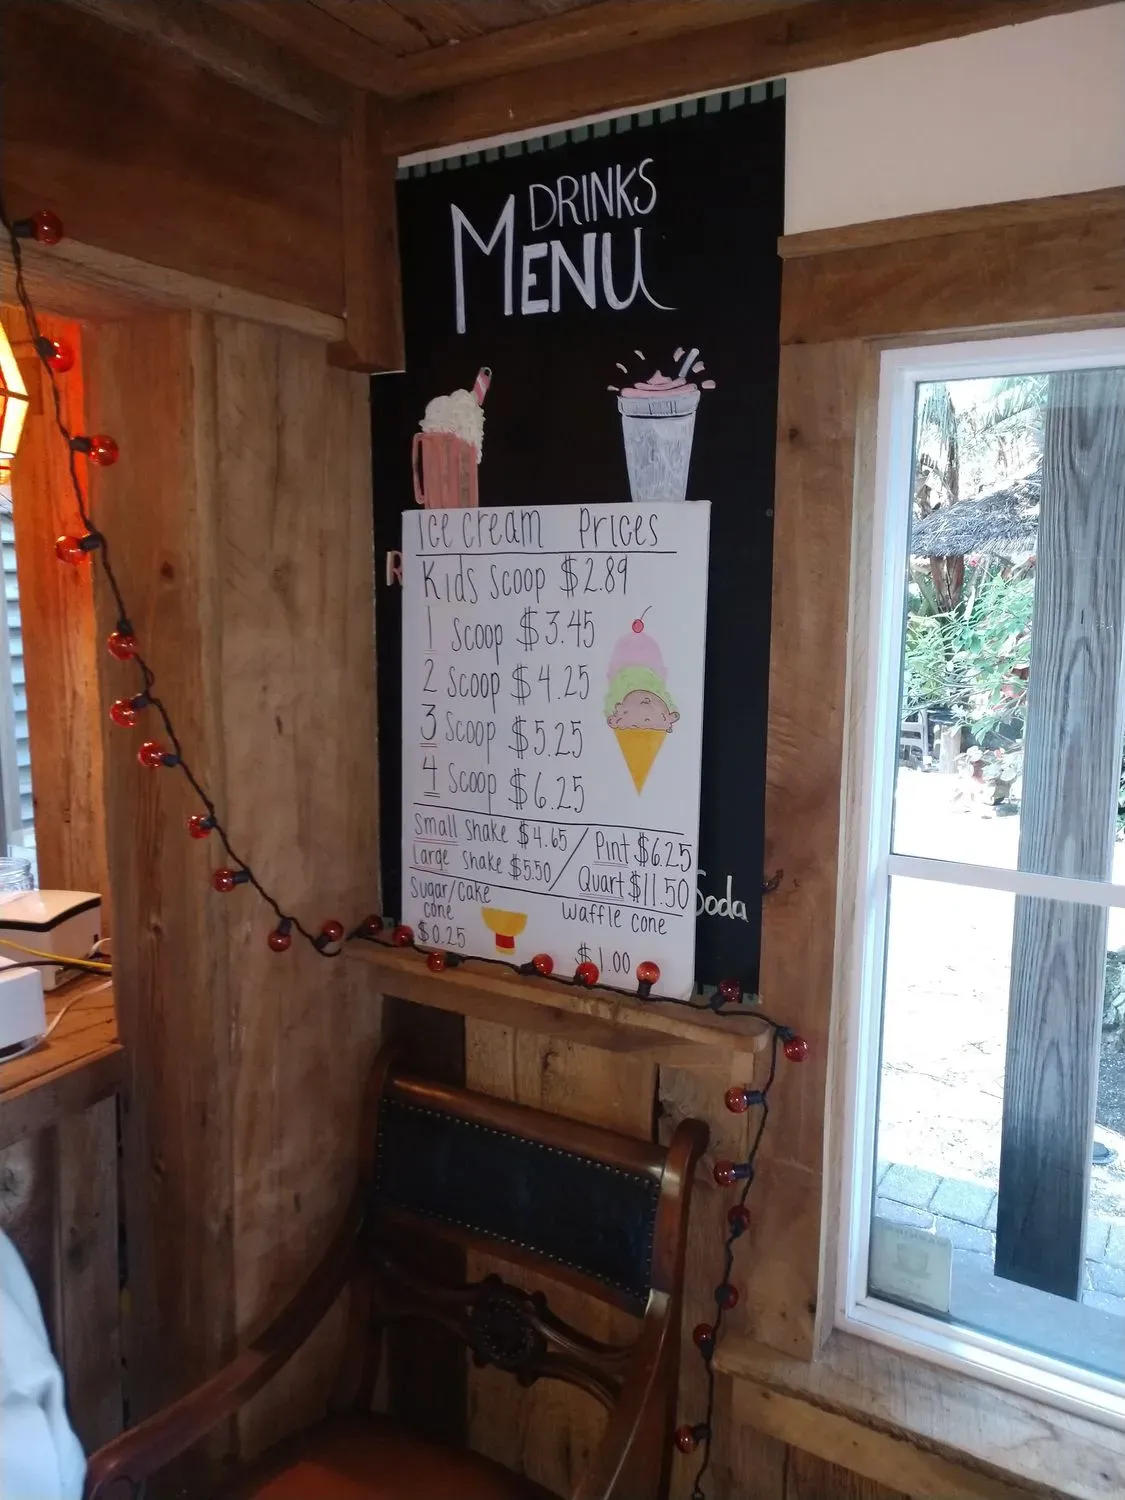 DRINKS
MENU
Ice cream Prices
R
Kids Scoop $2.89
1 Scoop $3.45
2 Scoop $4.25
3 Scoop $5.25
4 Scoop $6.25
Small shake $4.65 / Pint $6.25
Large shake $5.50 / Quart $11.50
Soda
Sugar/Cake cone $0.25
Waffle cone $1.00